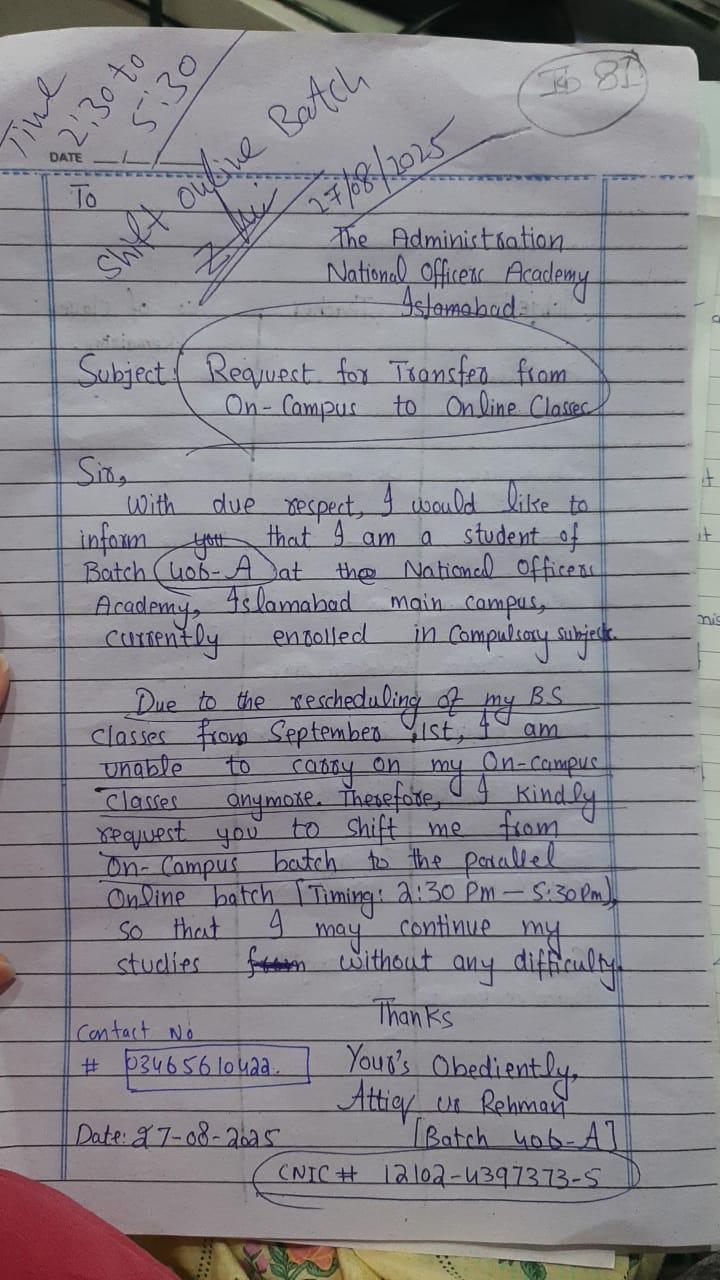 Time
2:30 to
5:30
ID 81
DATE
Shift online Batch
27/08/2025
To
The Administration
National Officers Academy
Islamabad.
Subject: Request for Transfer from
On-Campus to Online Classes
Sir,
With due respect, I would like to
inform you that I am a student of
Batch 406-A at the National Officers
Academy, Islamabad main campus,
currently enrolled in Compulsory subject.
Due to the rescheduling of my BS
classes from September 1st, I am
unable to carry on my On-campus
Classes anymore. Therefore, I kindly
request you to shift me from
On-Campus batch to the parallel
Online batch [Timing: 2:30 Pm - 5:30 Pm],
so that I may continue my
studies without any difficulty.
Thanks
Contact No
# 03465610422.
Your's Obediently,
Attiq ur Rehman
Date: 27-08-2025
[Batch 406-A]
CNIC # 12102-4397373-5